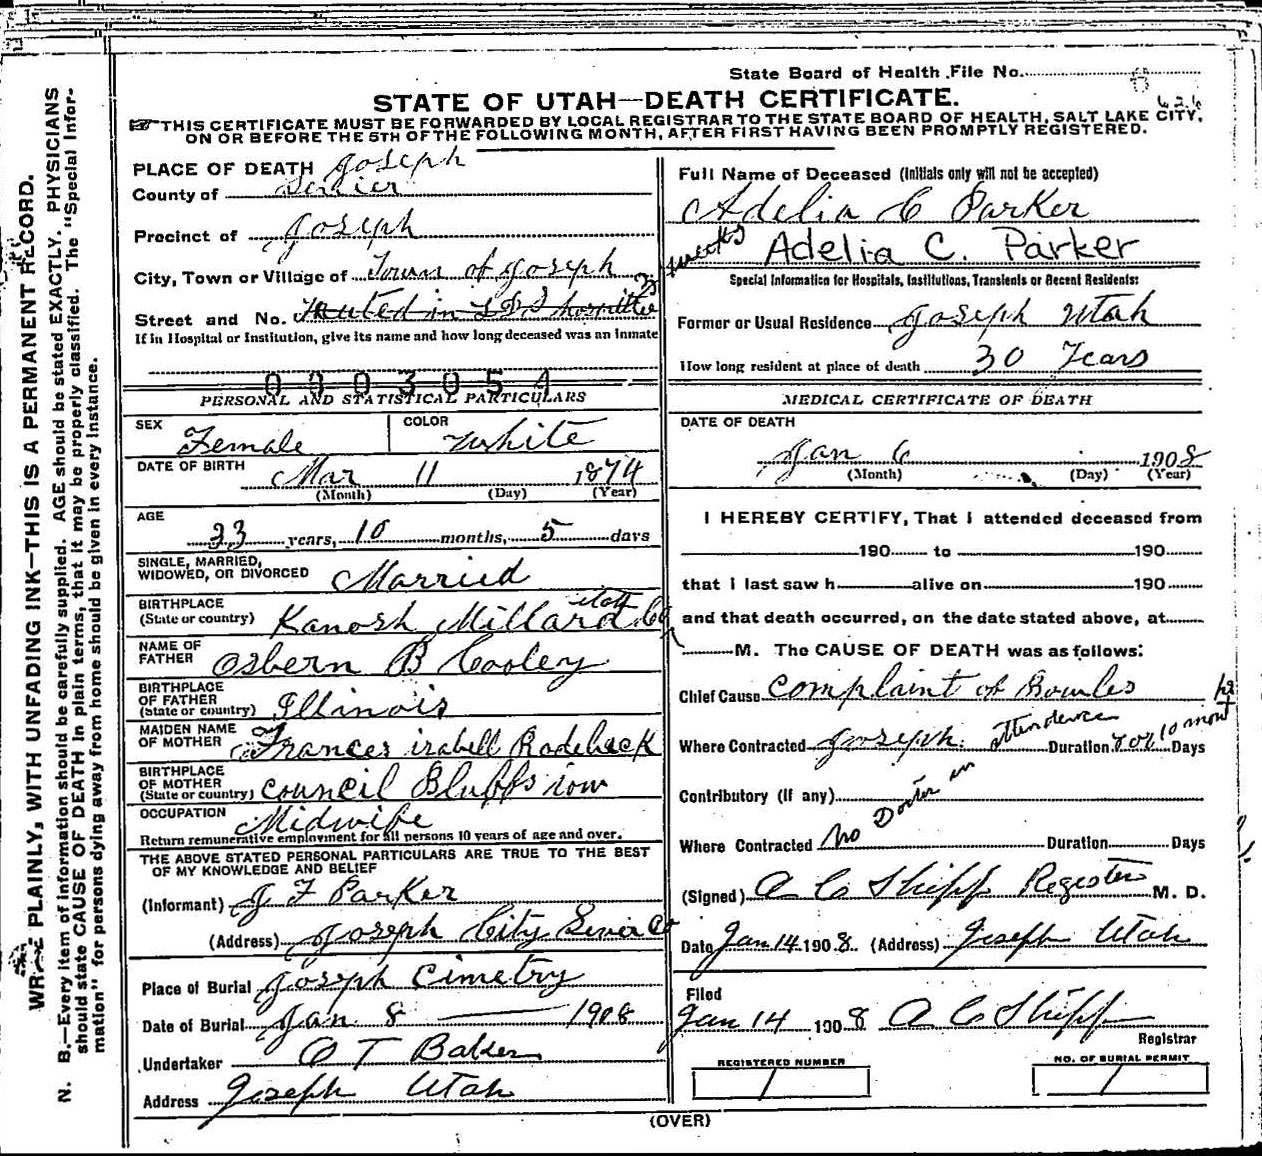 State Board of Health File No.
STATE OF UTAH—DEATH CERTIFICATE.
626
THIS CERTIFICATE MUST BE FORWARDED BY LOCAL REGISTRAR TO THE STATE BOARD OF HEALTH, SALT LAKE CITY,
ON OR BEFORE THE 5TH OF THE FOLLOWING MONTH, AFTER FIRST HAVING BEEN PROMPTLY REGISTERED.
WRITE PLAINLY, WITH UNFADING INK—THIS IS A PERMANENT RECORD.
N. B.—Every item of information should be carefully supplied. AGE should be stated EXACTLY. PHYSICIANS
should state CAUSE OF DEATH in plain terms, that it may be properly classified. The "Special Infor-
mation" for persons dying away from home should be given in every instance.
PLACE OF DEATH Joseph
County of Sevier
Precinct of Joseph
City, Town or Village of Town of Joseph
Street and No. in LDS 3 weeks
If in Hospital or Institution, give its name and how long deceased was an inmate
0003054
PERSONAL AND STATISTICAL PARTICULARS
SEX Female COLOR White
DATE OF BIRTH Mar 11 1874
(Month) (Day) (Year)
AGE
33 years, 10 months, 5 days
SINGLE, MARRIED,
WIDOWED, OR DIVORCED Married
BIRTHPLACE
(State or country) Kanosh Millard Co Utah
NAME OF
FATHER Osbern B Cooley
BIRTHPLACE
OF FATHER
(State or country) Illinois
MAIDEN NAME
OF MOTHER Frances izabell Rodeback
BIRTHPLACE
OF MOTHER
(State or country) Council Bluffs iow
OCCUPATION Midwife
Return remunerative employment for all persons 10 years of age and over.
THE ABOVE STATED PERSONAL PARTICULARS ARE TRUE TO THE BEST
OF MY KNOWLEDGE AND BELIEF
(Informant) J F Parker
(Address) Joseph City Sevier Co
Place of Burial Joseph Cimetry
Date of Burial Jan 8 1908
Undertaker O T Baker
Address Joseph Utah
Full Name of Deceased (Initials only will not be accepted)
Adelia C Parker
Adelia C. Parker
Special Information for Hospitals, Institutions, Transients or Recent Residents:
Former or Usual Residence Joseph Utah
How long resident at place of death 30 Years
MEDICAL CERTIFICATE OF DEATH
DATE OF DEATH
Jan 6 1908
(Month) (Day) (Year)
I HEREBY CERTIFY, That I attended deceased from
190 to 190
that I last saw h alive on 190
and that death occurred, on the date stated above, at
M. The CAUSE OF DEATH was as follows:
Chief Cause Complaint of Bowles
Where Contracted Joseph. Duration 10 mont Days
Contributory (If any)
No Doctor in attendence
Where Contracted Duration Days
(Signed) A C Shipp Register M. D.
Date Jan 14 1908. (Address) Joseph Utah
Filed
Jan 14 1908 A C Shipp
Registrar
REGISTERED NUMBER
1
NO. OF BURIAL PERMIT
1
(OVER)